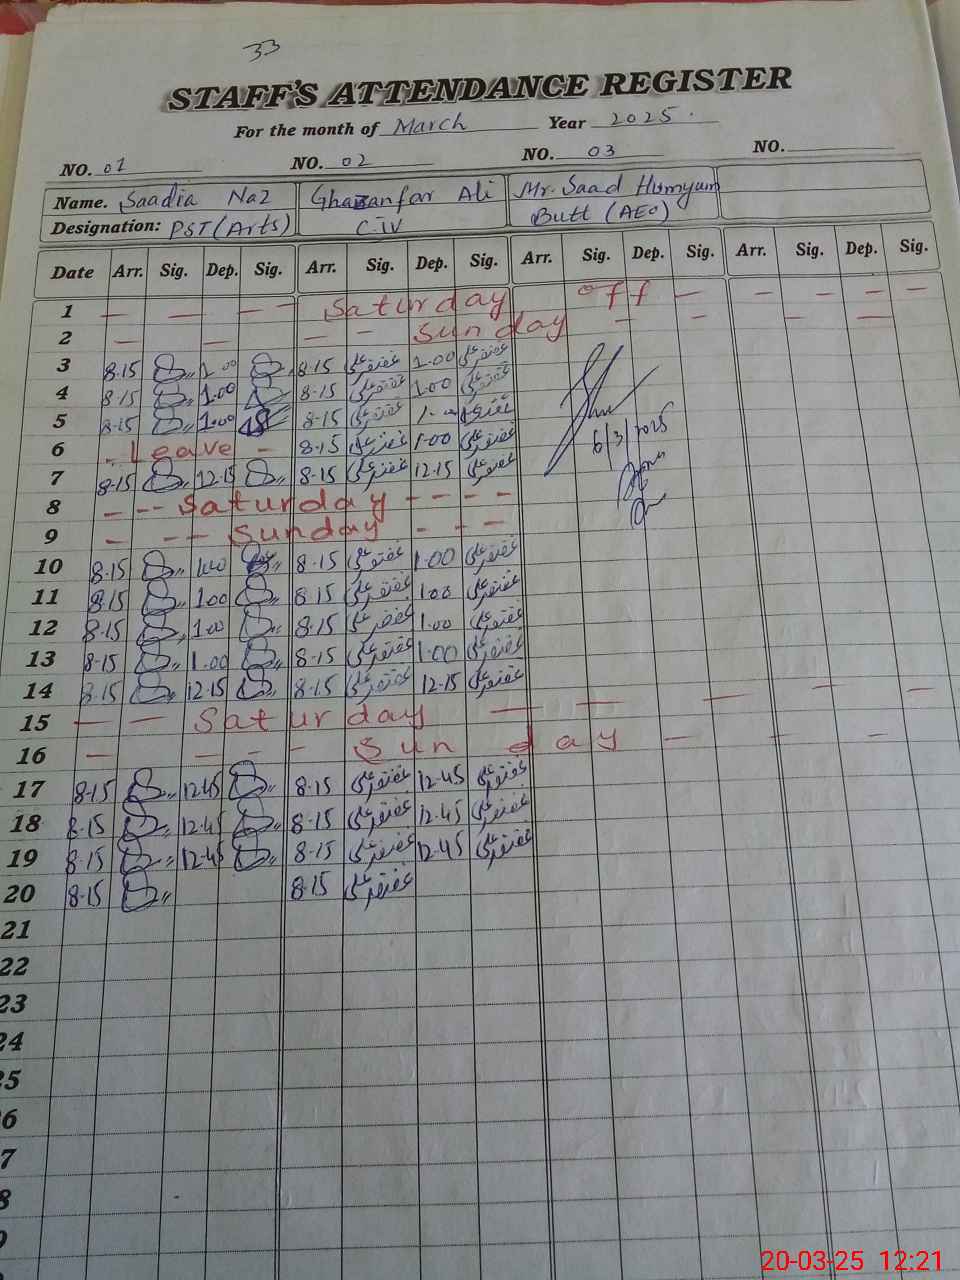 33
STAFF'S ATTENDANCE REGISTER
For the month of March Year 2025.
NO. 01 NO. 02 NO. 03 NO.
Name. Saadia Naz Ghazanfar Ali Mr. Saad Humyum
Designation: PST (Arts) C-IV Butt (AEO)
Date Arr. Sig. Dep. Sig. Arr. Sig. Dep. Sig. Arr. Sig. Dep. Sig. Arr. Sig. Dep. Sig.
1 — — — — Saturday off — — — — —
2 — — — — Sunday — — — —
3 8.15 1.00 8.15 غضنفر علی 1.00 غضنفر علی
4 8.15 1.00 8.15 غضنفر علی 1.00 غضنفر علی
5 8.15 1.00 8.15 غضنفر علی 1.00 غضنفر علی
6 - Leave - 8.15 غضنفر علی 1.00 غضنفر علی 6/3/2025
7 8.15 12.15 8.15 غضنفر علی 12.15 غضنفر علی
8 - -- Saturday - - - -
9 - -- Sunday - - -
10 8.15 1.00 8.15 غضنفر علی 1.00 غضنفر علی
11 8.15 1.00 8.15 غضنفر علی 1.00 غضنفر علی
12 8.15 1.00 8.15 غضنفر علی 1.00 غضنفر علی
13 8.15 1.00 8.15 غضنفر علی 1.00 غضنفر علی
14 8.15 12.15 8.15 غضنفر علی 12.15 غضنفر علی
15 — — Saturday — — — — —
16 — — - - Sunday — — —
17 8.15 12.45 8.15 غضنفر علی 12.45 غضنفر علی
18 8.15 12.45 8.15 غضنفر علی 12.45 غضنفر علی
19 8.15 12.45 8.15 غضنفر علی 12.45 غضنفر علی
20 8.15 8.15 غضنفر علی
21
22
23
24
5
6
7
8
20-03-25 12:21